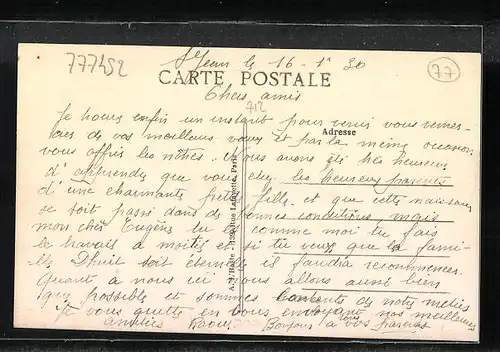 777452
St Jean le 16-1-30
CARTE POSTALE
77
Chers amis
712
Je trouve enfin un instant pour venir vous remer-
cier de vos meilleurs voeux et par la même occasion
Adresse
vous offrir les nôtres. Nous avons été très heureux
d'apprendre que vous étiez les heureux parents
d'une charmante petite fille et que cette naissance
se soit passé dans de bonnes conditions, mais
mon cher Eugène tu es comme moi tu fais
le travail à moitié et si tu veux que la fami-
lle Dhuit soit éternelle il faudra recommencer.
Quant à nous ici nous allons aussi bien
que possible et sommes contents de notre métier
Je vous quitte en vous envoyant nos meilleures
amitiés Raoul Bonjour à vos parents
Rue Lafayette, Paris